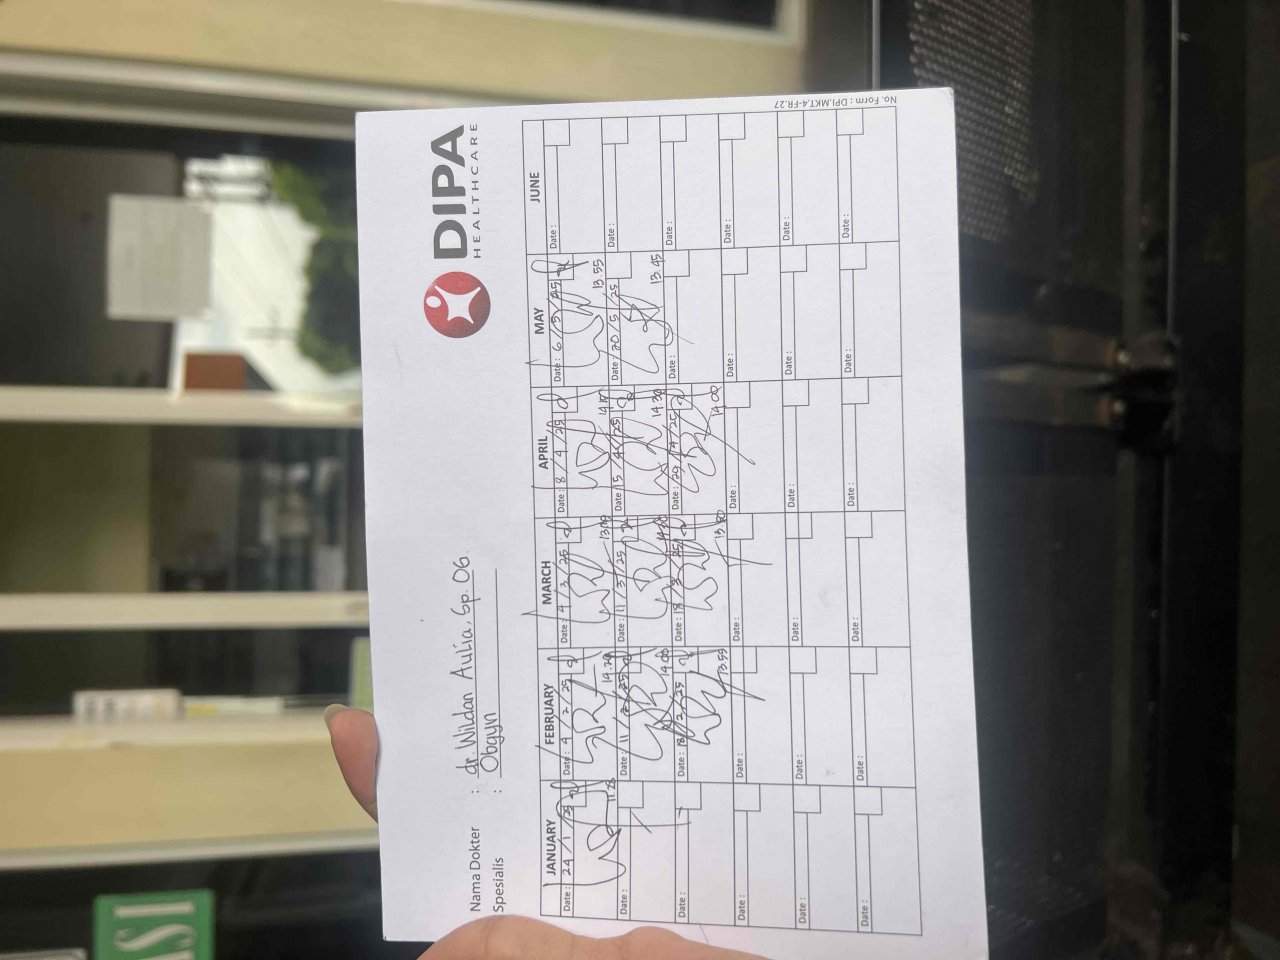 DIPA
HEALTHCARE
Nama Dokter : dr. Wildan Aulia, Sp. OG
Spesialis : Obgyn
JANUARY FEBRUARY MARCH APRIL MAY JUNE
Date : 24/1/25 Date : 4/2/25 Date : 4/3/25 Date : 8/4/25 Date : 6/5/25 Date :
11.25 14.20 14.10 13.55
Date : Date : 11/2/25 Date : 11/3/25 Date : 15/4/25 Date : 20/5/25 Date :
14.00 14.20 13.45
Date : Date : 18/2/25 Date : 18/3/25 Date : 29/4/25 Date : Date :
13.55 13.50 14.00
Date : Date : Date : Date : Date : Date :
Date : Date : Date : Date : Date : Date :
Date : Date : Date : Date : Date : Date :
No. Form : DPI.MKT.4-FR.27
IS